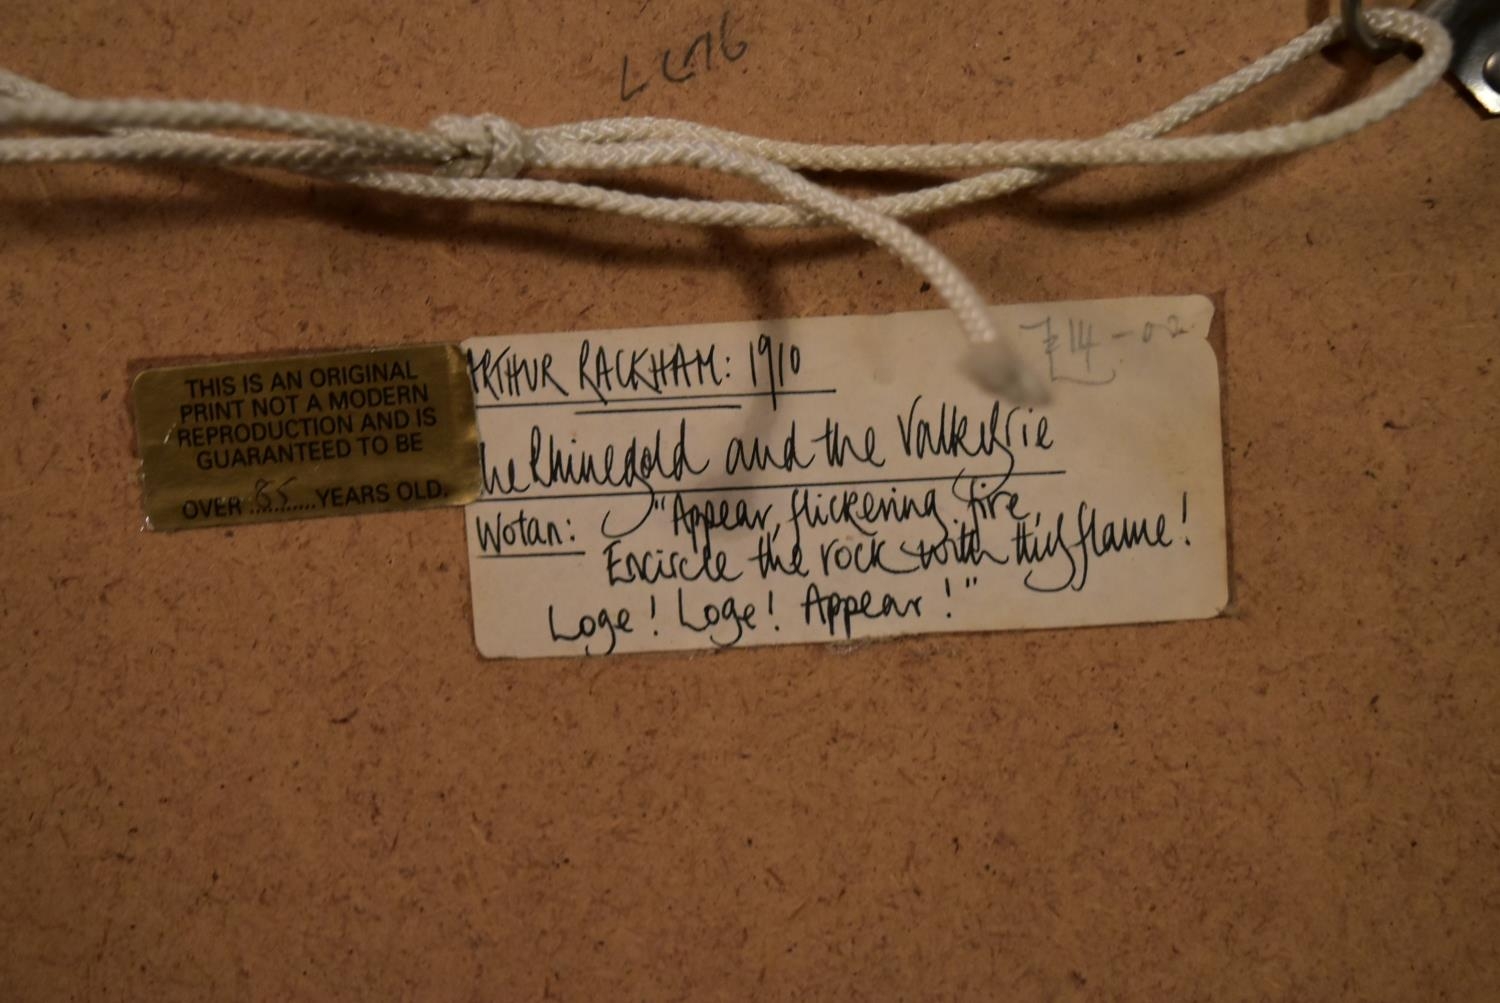 THIS IS AN ORIGINAL
PRINT NOT A MODERN
REPRODUCTION AND IS
GUARANTEED TO BE
OVER 85 YEARS OLD.
ARTHUR RACKHAM: 1910
he Rhinegold and the Valkyrie
Wotan: "Appear, flickering fire,
Encircle the rock with thy flame!
Loge! Loge! Appear!"